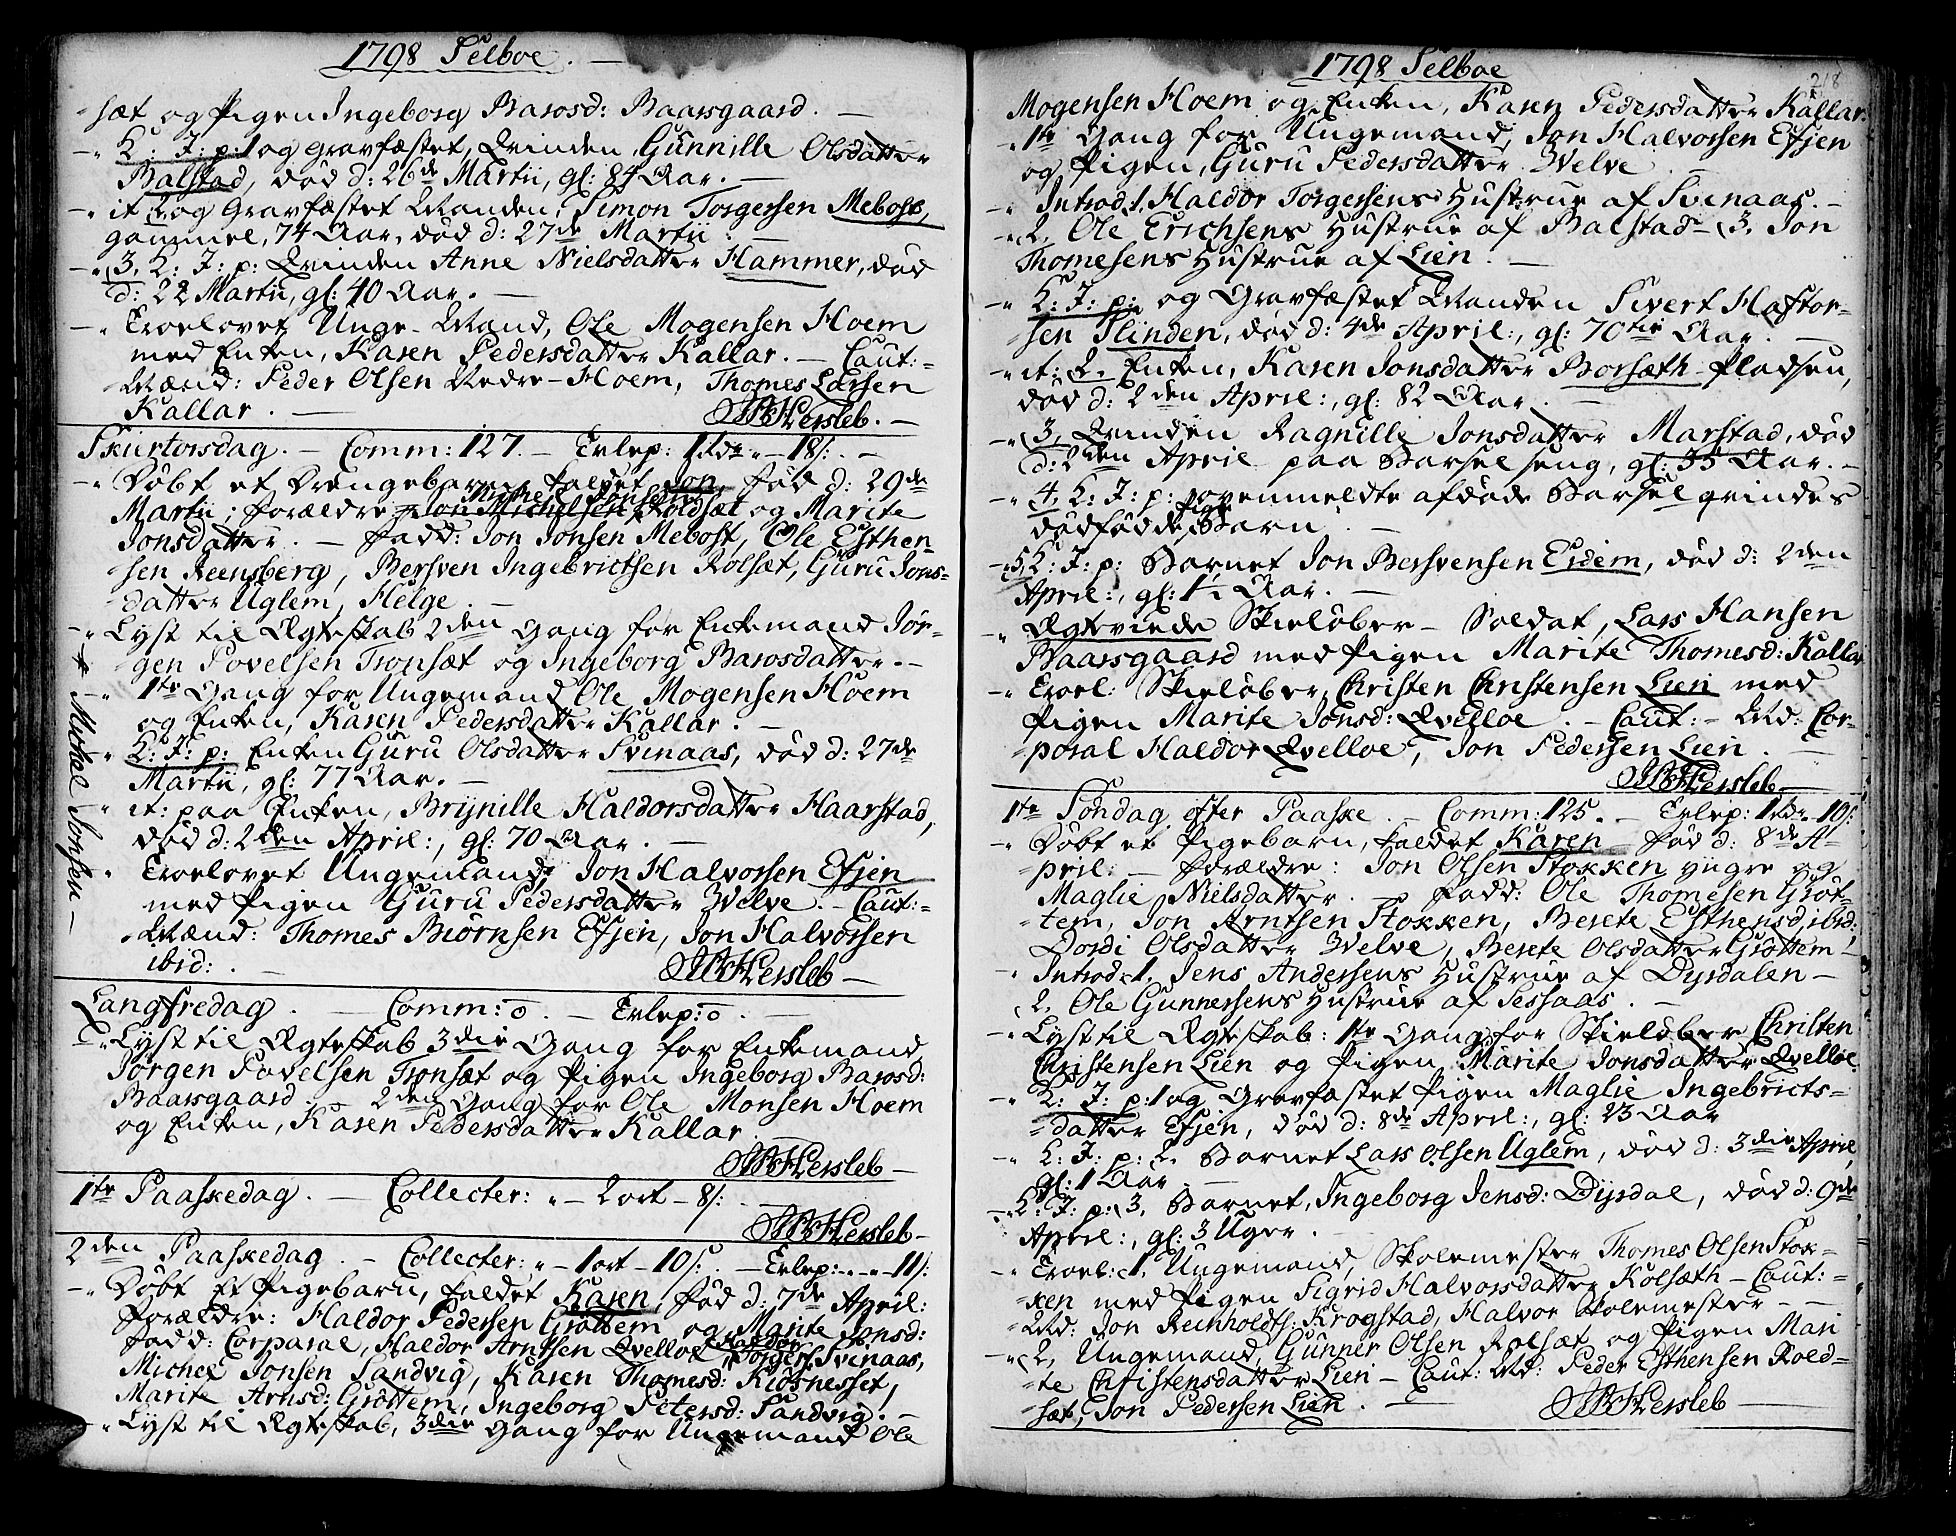 1798 Selboe.
sæt og Pigen Ingeborg Barosd: Baarsgaard. —
K: J: p: 1 og Gravfæstet, Qvinden Gunnille Olsdatter
Balstad, død d: 26de Martii, gl: 84 Aar. —
it 2 og Gravfæstet Manden, Simon Torgersen Mebost,
gammel, 74 Aar, død d: 27de Martii. —
3, K: J: p: Qvinden Anne Nielsdatter Hammer, død
d: 22 Martii, gl: 40 Aar. —
Troelovet Unge-Mand, Ole Mogensen Hoem
med Enken, Karen Pedersdatter Kallar. — Caut:
Mænd: Peder Olsen Nedre-Hoem, Thomes Larsen
Kallar. — Hersleb. —
Skiertorsdag. — Comm: 127. — Exlep: 1 rdr " — 18 s: —
Døbt et Drengebarn kaldet Jon, fød d: 29de
Michel Jonsen
Martii; Forældre Jon Michelsen Roldsæt og Marite
Jonsdatter. — Fadd: Jon Jonsen Mebost, Ole Esthen-
sen Reensberg, Bersven Ingebrictsen Rolsæt, Guru Jons-
datter Uglem, Helge. —
Lyst til Ægteskab 2den Gang for Enkemand Jør-
gen Povelsen Tronsæt og Ingeborg Barosdatter. —
1te Gang for Ungemand Ole Mogensen Hoem
og Enken, Karen Pedersdatter Kallar. —
K: J: p: Enken Guru Olsdatter Svinaas, død d: 27de
Martii, gl: 77 Aar. —
it: paa Enken, Brynille Haldorsdatter Haarstad,
død d: 2den April:, gl: 70 Aar. —
Troelovet Ungemand, Jon Halvorsen Efjen
med Pigen Guru Pedersdatter Welve. — Caut:
Mænd: Thomes Biørnsen Efjen, Jon Halvorsen
ibid: — Hersleb —
Michel Jonsen —
Langfredag. — Comm: o. — Exlep: o. —
Lyst til Ægteskab 3die Gang for Enkemand
Jørgen Povelsen Tronsæt og Pigen Ingeborg Barosd:
Baarsgaard — 2den Gang for Ole Monsen Hoem
og Enken, Karen Pedersdatter Kallar.
Hersleb —
1te Paaskedag. — Collecter: " — 2 ort — 8 s: —
Hersleb —
2den Paaskedag. — Collecter: " — 1 ort — 10 s: — Exlep: " — " 11 s:
Døbt Et Pigebarn, kaldet Karen, fød d: 7de April:
Forældre: Haldor Pedersen Grøttem og Marite Jonsd:
Fadd: Corparal, Haldor Arntsen Qvelloe, Haldor Torgers: Svinaas,
Michel Jonsen Sandvig, Karen Thomesd: Kiøsnesset,
Marite Arnsd: Grøttem, Ingeborg Petersd: Sandvig. —
Lyst til Ægteskab, 3die Gang for Ungemand Ole
1798 Selboe
218
Mogensen Hoem og Enken, Karen Pedersdatter Kallar.
1te Gang for Ungemand, Jon Halvorsen Efjen
og Pigen, Guru Pedersdatter Welve. —
Introd 1, Haldor Torgersens Hustrue af Svinaas. —
2, Ole Erichsens Hustrue af Balstad — 3, Jon
Thomesens Hustrue af Lien. —
K: J: p: og Gravfæstet Manden Sivert Haftor-
sen Slinden, død d: 4de April:, gl: 70tie Aar. —
it: 2, Enken, Karen Jonsdatter Borsæth-Pladsen,
død d: 2den April:, gl: 82 Aar. —
3, Qvinden Ragnille Jonsdatter Marstad, død
d: 2den April paa Barselseng, gl: 35 Aar. —
4, K: J: p: ovenmeldte afdøde Barselqvindes
dødfødde Pige Barn. —
5, K: J: p: Barnet Jon Bersvensen Eidem, død d: 2den
April:, gl: 1½ Aar. —
Ægteviede Skieløber-Soldat, Lars Hansen
Baarsgaard med Pigen Marite Thomesd: Kallar
Troel: Skieløber, Christen Christensen Lien med
Pigen Marite Jonsd: Qvelloe. — Caut: Md: Cor-
poral Haldor Qvelloe, Jon Pedersen Lien. —
Hersleb —
1te Søndag efter Paaske. — Comm: 125. — Exlep: 1 rdr " 10 s:
Døbt et Pigebarn, kaldet Karen fød d: 8de A-
pril: — Forældre: Jon Olsen Stokken yngre og
Maglie Nielsdatter. — Fadd: Ole Thomesen Grøt-
tem, Jon Arntsen Stokken, Berete Esthensd, ibid:
Dordi Olsdatter Welve, Berete Olsdatter Grøttem —
Introd: 1, Jens Andersens Hustrue af Dysdalen —
2, Ole Gunnersens Hustrue af Sessaas. —
Lyst til Ægteskab: 1te Gang for Skieløber Christen
Christensen Lien og Pigen Marite Jonsdatter Qvelloe
K: J: p: 1 og Gravfæstet Pigen Maglie Ingebricts-
datter Efjen, død d: 8de April:, gl: 23 Aar
K: J: p: 2, Barnet Lars Olsen Uglem, død d: 3die April,
gl: 1 Aar —
K: J: p: 3, Barnet, Ingeborg Jensd: Dysdal, død d: 9de
April:, gl: 3 Uger. —
Troel: 1, Ungemand, Skolemester Thomes Olsen Stok-
ken med Pigen Sigrid Halvorsdatter Kolsæth — Caut:
Md: Jon Reinholdts: Krogstad, Halvor Skolemester —
2, Ungemand, Gunner Olsen Rolsæt og Pigen Mari
te Christensdatter Lien — Caut: Md: Peder Esthensen Rold-
sæt, Jon Pedersen Lien. — Hersleb —